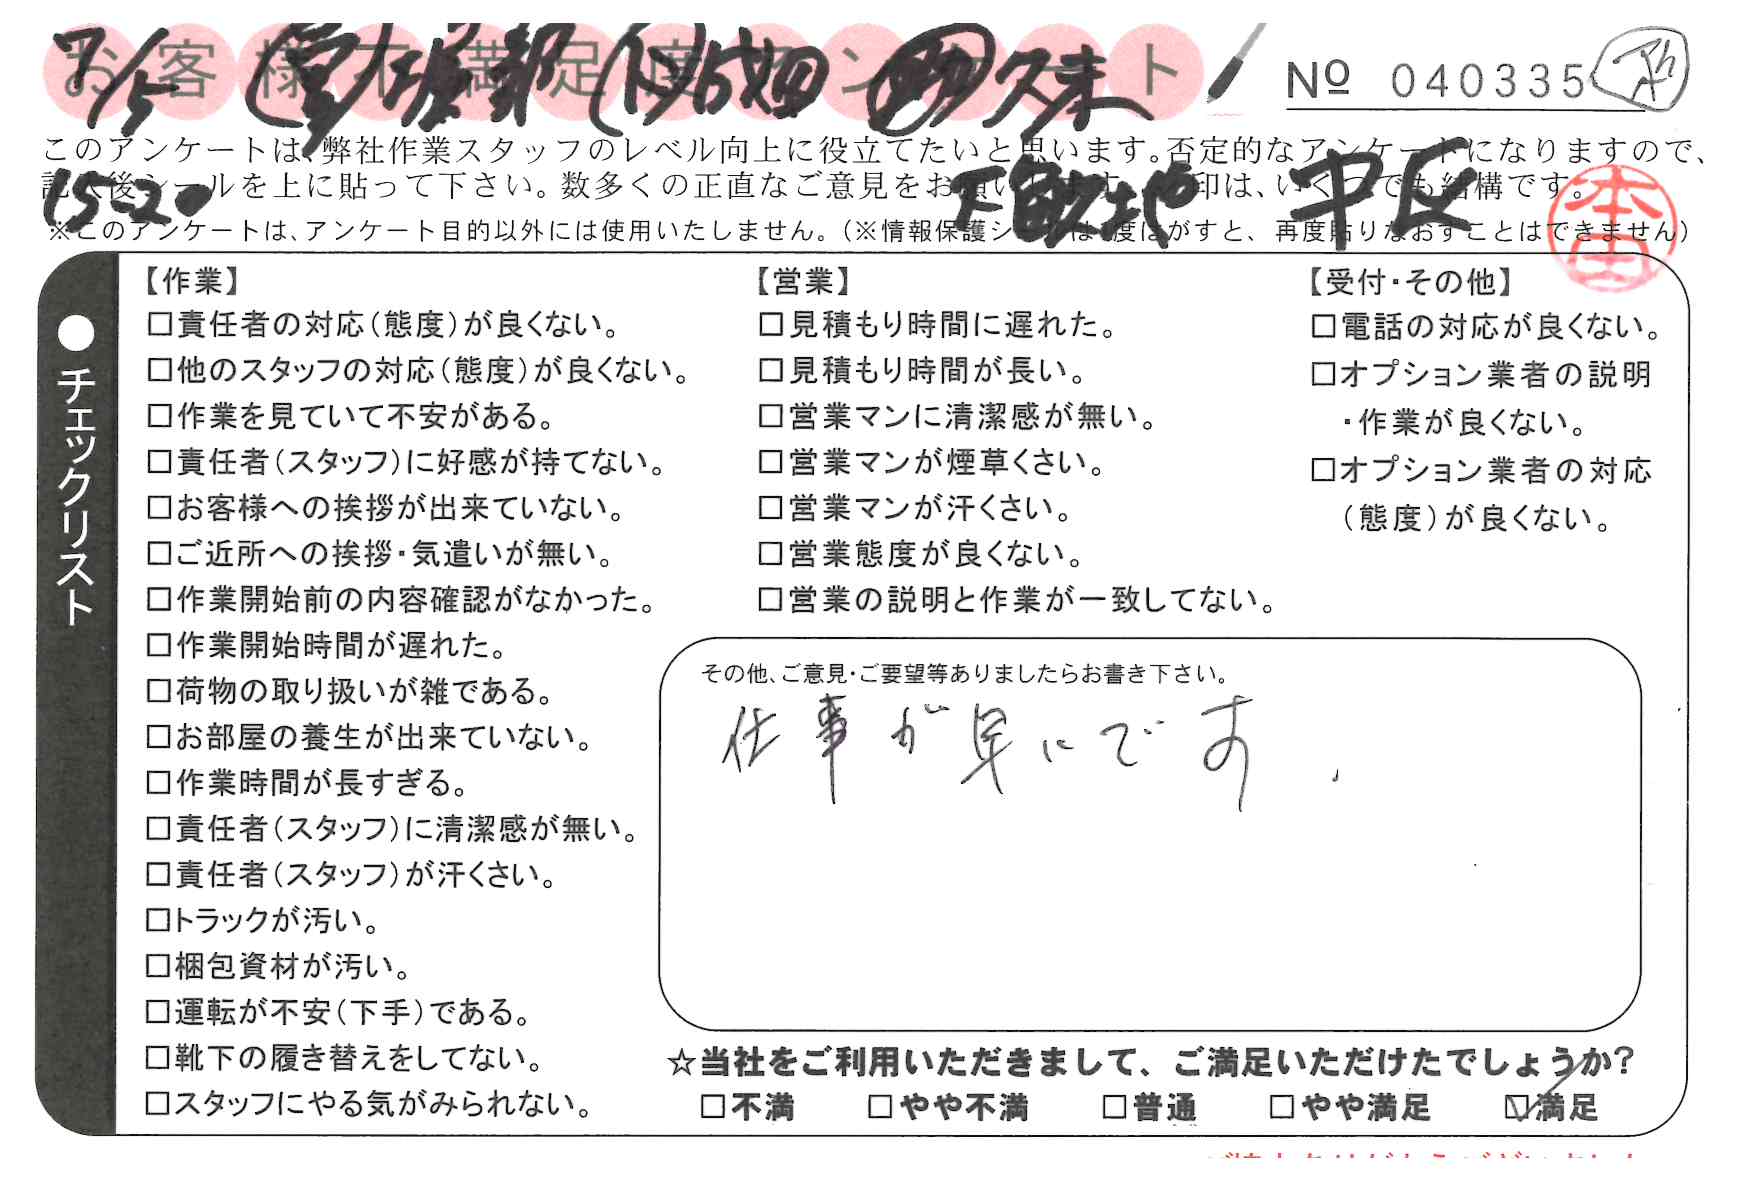 お客様不満足度アンケート
7/5
№ 040335
このアンケートは、弊社作業スタッフのレベル向上に役立てたいと思います。否定的なアンケートになりますので、
記入後シールを上に貼って下さい。数多くの正直なご意見をお願いします。 印は、いくつでも結構です。
15-20 中区
※このアンケートは、アンケート目的以外には使用いたしません。（※情報保護シールは1度はがすと、再度貼りなおすことはできません）
本田
●チェックリスト
【作業】
□責任者の対応（態度）が良くない。
□他のスタッフの対応（態度）が良くない。
□作業を見ていて不安がある。
□責任者（スタッフ）に好感が持てない。
□お客様への挨拶が出来ていない。
□ご近所への挨拶・気遣いが無い。
□作業開始前の内容確認がなかった。
□作業開始時間が遅れた。
□荷物の取り扱いが雑である。
□お部屋の養生が出来ていない。
□作業時間が長すぎる。
□責任者（スタッフ）に清潔感が無い。
□責任者（スタッフ）が汗くさい。
□トラックが汚い。
□梱包資材が汚い。
□運転が不安（下手）である。
□靴下の履き替えをしてない。
□スタッフにやる気がみられない。
【営業】
□見積もり時間に遅れた。
□見積もり時間が長い。
□営業マンに清潔感が無い。
□営業マンが煙草くさい。
□営業マンが汗くさい。
□営業態度が良くない。
□営業の説明と作業が一致してない。
【受付・その他】
□電話の対応が良くない。
□オプション業者の説明
・作業が良くない。
□オプション業者の対応
（態度）が良くない。
その他、ご意見・ご要望等ありましたらお書き下さい。
仕事が早いです.
☆当社をご利用いただきまして、ご満足いただけたでしょうか？
□不満 □やや不満 □普通 □やや満足 ☑満足